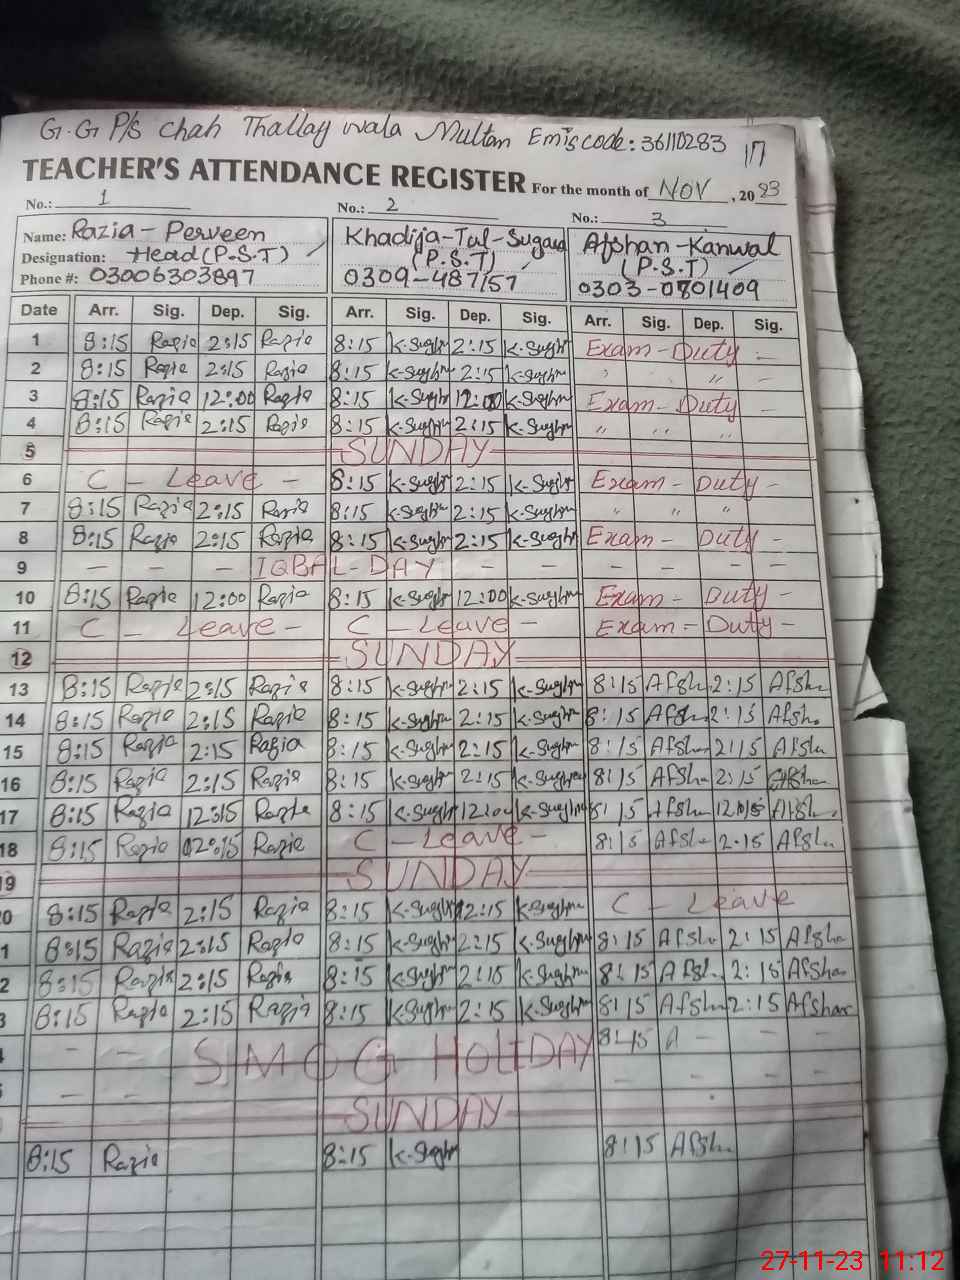 G.G P/S Chah Thallay wala Multan Emis code: 36110283 17
TEACHER'S ATTENDANCE REGISTER For the month of NOV, 2023
No.: 1 No.: 2 No.: 3
Name: Razia - Perveen Khadija-Tul-Sugara Afshan - Kanwal
Designation: Head (P.S.T) (P.S.T) (P.S.T)
Phone #: 03006303897 0309-487157 0303-0801409
Date Arr. Sig. Dep. Sig. Arr. Sig. Dep. Sig. Arr. Sig. Dep. Sig.
1 8:15 Razia 2:15 Razia 8:15 K-Sughra 2:15 K-Sughra Exam - Duty -
2 8:15 Razia 2:15 Razia 8:15 K-Sughra 2:15 K-Sughra " -
3 8:15 Razia 12:00 Razia 8:15 K-Sughra 12:00 K-Sughra Exam - Duty -
4 8:15 Razia 2:15 Razia 8:15 K-Sughra 2:15 K-Sughra " " "
5 SUNDAY
6 C - Leave - 8:15 K-Sughra 2:15 K-Sughra Exam - Duty -
7 8:15 Razia 2:15 Razia 8:15 K-Sughra 2:15 K-Sughra " " "
8 8:15 Razia 2:15 Razia 8:15 K-Sughra 2:15 K-Sughra Exam - Duty -
9 - - - IQBAL-DAY - - - - - -
10 8:15 Razia 12:00 Razia 8:15 K-Sughra 12:00 K-Sughra Exam - Duty -
11 C - Leave - C - Leave - Exam - Duty -
12 SUNDAY
13 8:15 Razia 2:15 Razia 8:15 K-Sughra 2:15 K-Sughra 8:15 Afsha 2:15 Afsha
14 8:15 Razia 2:15 Razia 8:15 K-Sughra 2:15 K-Sughra 8:15 Afsha 2:15 Afsha
15 8:15 Razia 2:15 Razia 8:15 K-Sughra 2:15 K-Sughra 8:15 Afshan 2:15 Afsha
16 8:15 Razia 2:15 Razia 8:15 K-Sughra 2:15 K-Sughra 8:15 Afsha 2:15 Afshan
17 8:15 Razia 12:15 Razia 8:15 K-Sughra 12:00 K-Sughra 8:15 Afsha Afsha
18 8:15 Razia 02:15 Razia C - Leave - 8:15 Afsha 2:15 Afsha
19 SUNDAY
20 8:15 Razia 2:15 Razia 8:15 K-Sughra 2:15 K-Sughra C - Leave
1 8:15 Razia 2:15 Razia 8:15 K-Sughra 2:15 K-Sughra 8:15 Afsha 2:15 Afsha
2 8:15 Razia 2:15 Razia 8:15 K-Sughra 2:15 K-Sughra 8:15 Afsha 2:15 Afshan
3 8:15 Razia 2:15 Razia 8:15 K-Sughra 2:15 K-Sughra 8:15 Afsha 2:15 Afshan
- - SIMOG HOLIDAY 8:15 A - - -
- - - - - -
SUNDAY
8:15 Razia 8:15 K-Sughra 8:15 Afsha
27-11-23 11:12